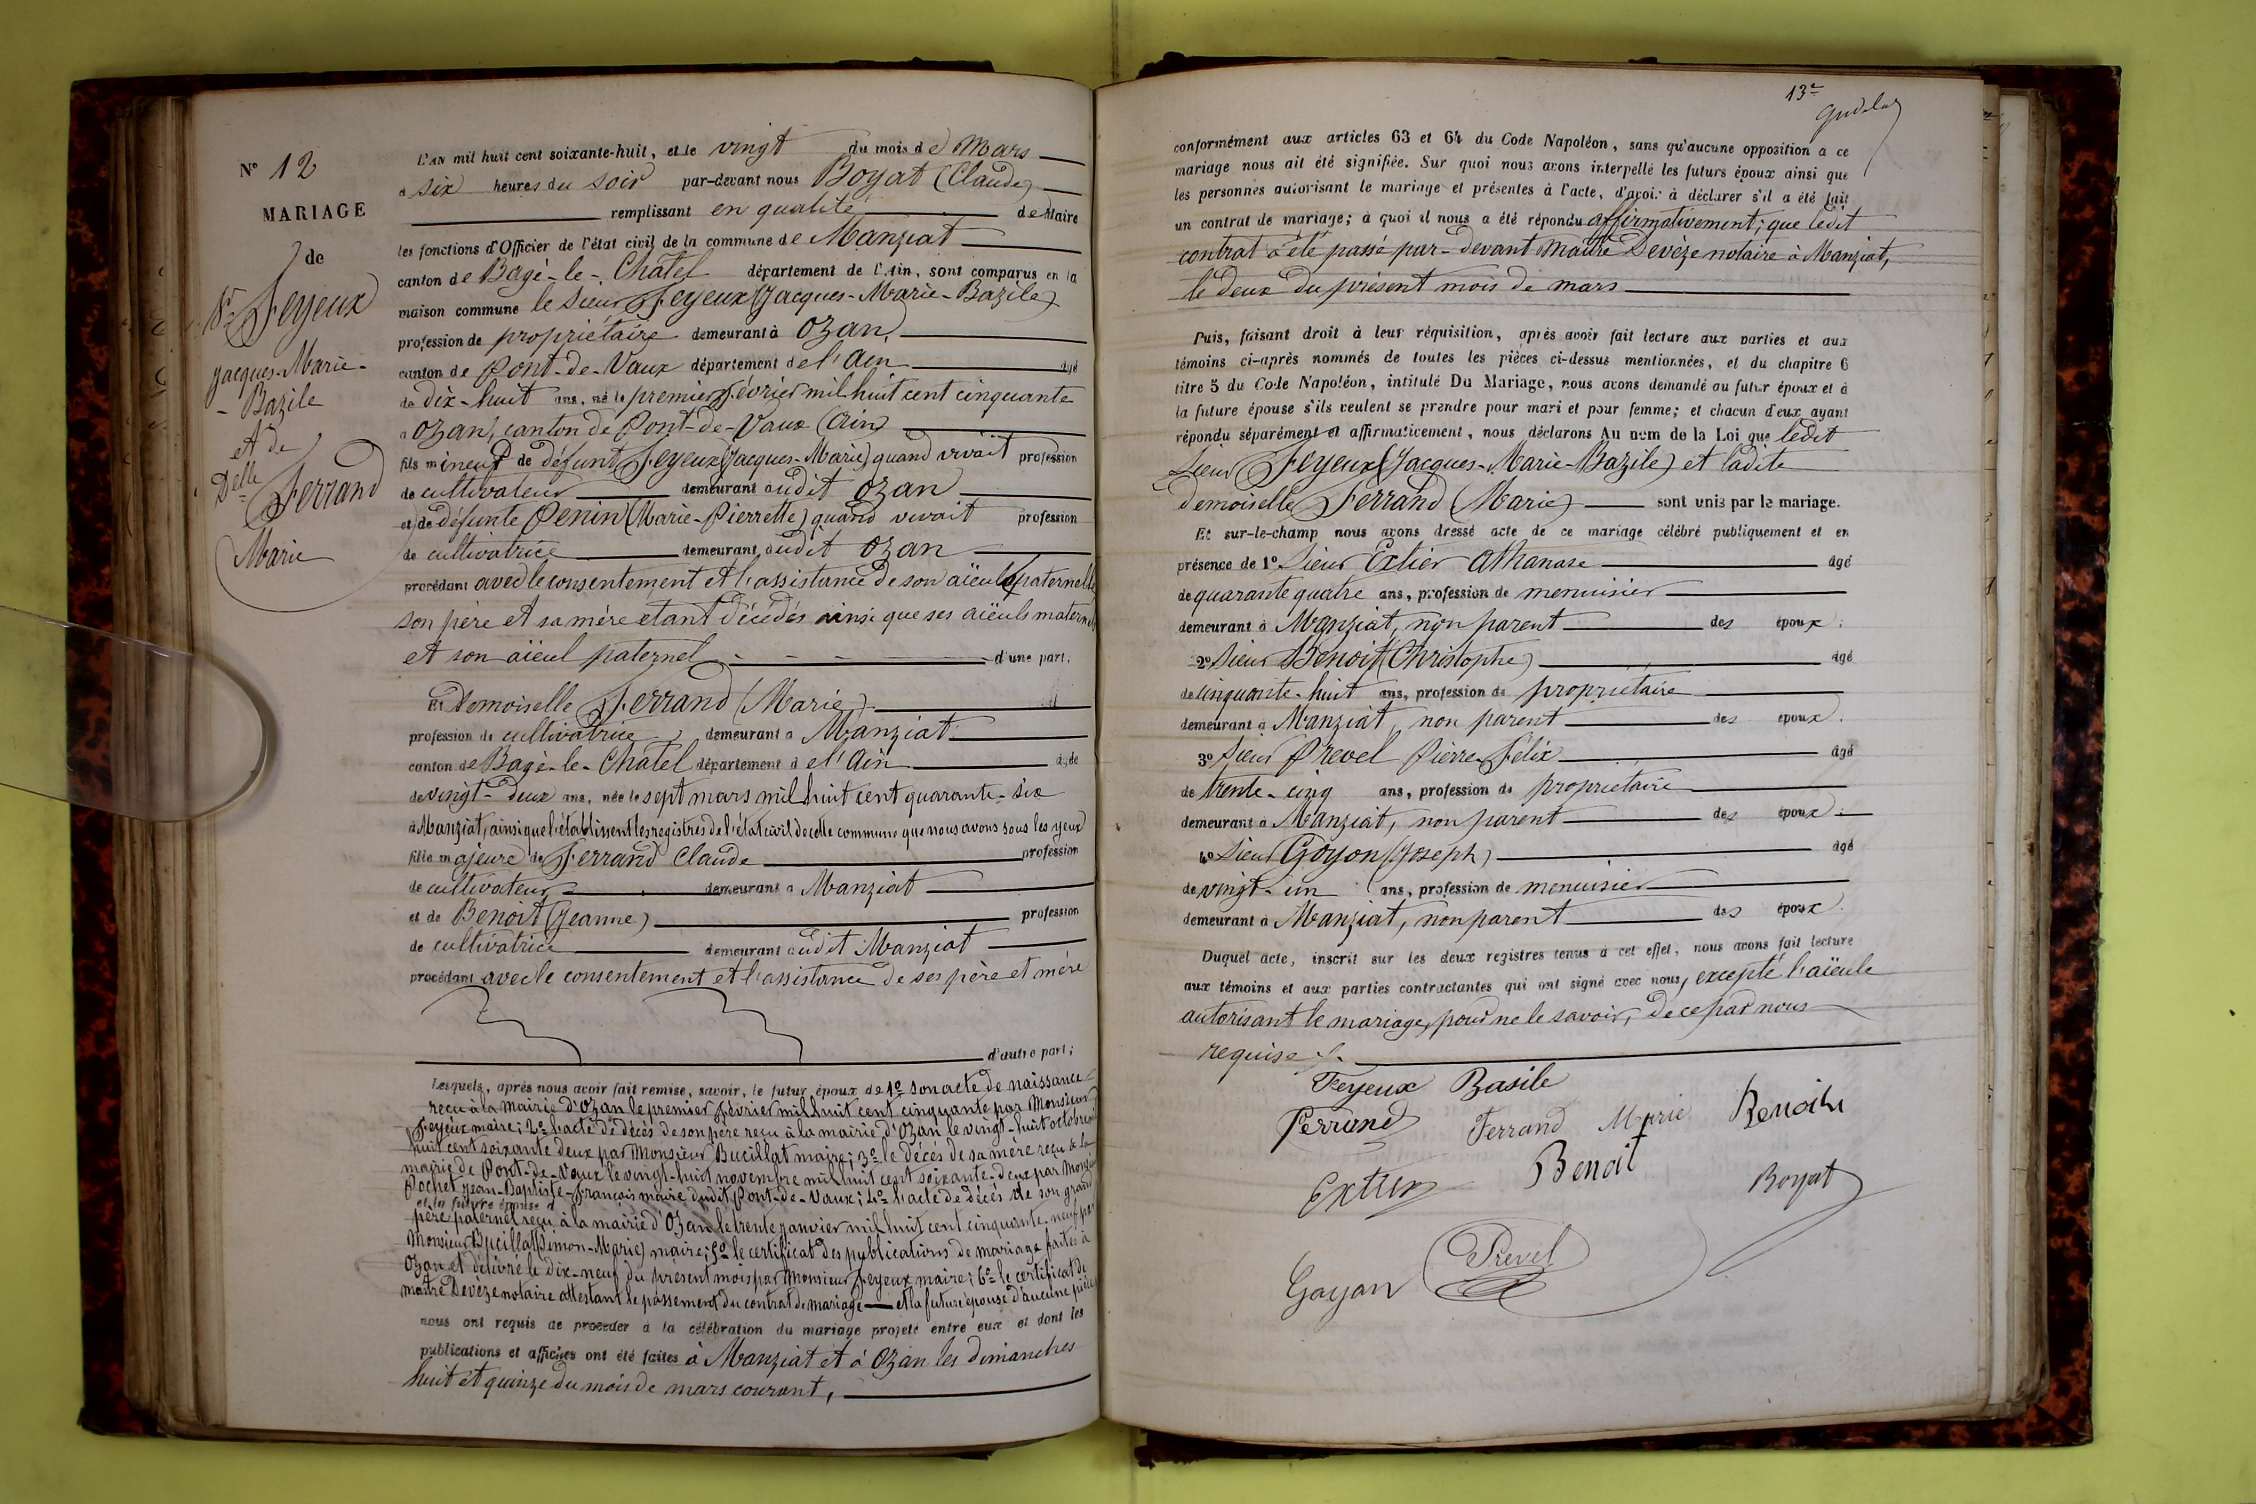 N° 12
MARIAGE
de
Sr Feyeux
Jacques-Marie-
- Bazile
et de
Delle Ferrand
Marie
L'AN mil huit cent soixante-huit, et le vingt du mois de Mars
à six heures du soir par-devant nous Boyat (Claude)
remplissant en qualité de Maire
les fonctions d'Officier de l'état civil de la commune de Manziat
canton de Bagé-le-Châtel département de l'Ain, sont comparus en la
maison commune le sieur Feyeux (Jacques-Marie-Bazile)
profession de propriétaire demeurant à Ozan,
canton de Pont-de-Vaux département de l'Ain âgé
de dix-huit ans, né le premier février mil huit cent cinquante
à Ozan, canton de Pont-de-Vaux (Ain)
fils mineur de défunt Feyeux (Jacques-Marie) quand vivait profession
de cultivateur demeurant audit Ozan
et de défunte Penin (Marie-Pierrette) quand vivait profession
de cultivatrice demeurant audit Ozan
procédant avec le consentement et l'assistance de son aïeule paternelle
son père et sa mère étant décédés ainsi que ses aïeuls maternels
et son aïeul paternel - - - - d'une part,
Et Demoiselle Ferrand (Marie)
profession de cultivatrice demeurant à Manziat
canton de Bagé-le-Châtel département de l'Ain âgée
de vingt-deux ans, née le sept mars mil huit cent quarante-six
à Manziat, ainsi que l'établissent les registres de l'état civil de cette commune que nous avons sous les yeux
fille majeure de Ferrand Claude profession
de cultivateur demeurant à Manziat
et de Benoit (Jeanne) profession
de cultivatrice demeurant audit Manziat
procédant avec le consentement et l'assistance de ses père et mère
d'autre part;
Lesquels, après nous avoir fait remise, savoir, le futur époux de 1° son acte de naissance
reçu à la mairie d'Ozan le premier février mil huit cent cinquante par Monsieur
Feyeux maire; 2° l'acte de décès de son père reçu à la mairie d'Ozan le vingt-huit octobre mil
huit cent soixante deux par Monsieur Bucillat maire; 3° le décès de sa mère reçu à la
mairie de Pont-de-Vaux le vingt-huit novembre mil huit cent soixante-deux par Monsieur
Pochet Jean-Baptiste-François maire dudit Pont-de-Vaux; 4° l'acte de décès de son grand
et la future épouse d
père paternel reçu à la mairie d'Ozan le trente janvier mil huit cent cinquante-neuf par
Monsieur Bucillat (Simon-Marie) maire; 5° le certificat des publications de mariage faites à
Ozan et délivré le dix-neuf du présent mois par Monsieur Feyeux maire; 6° le certificat de
maître Devèze notaire attestant le passement du contrat de mariage — et la future épouse d'aucune pièce
nous ont requis de procéder à la célébration du mariage projeté entre eux et dont les
publications et affiches ont été faites à Manziat et à Ozan les dimanches
huit et quinze du mois de mars courant,
13e
conformément aux articles 63 et 64 du Code Napoléon, sans qu'aucune opposition a ce
mariage nous ait été signifiée. Sur quoi nous avons interpellé les futurs époux ainsi que
les personnes autorisant le mariage et présentes à l'acte, d'avoir à déclarer s'il a été fait
un contrat de mariage; à quoi il nous a été répondu affirmativement; que ledit
contrat a été passé par-devant maître Devèze notaire à Manziat,
le deux du présent mois de mars
Puis, faisant droit à leur réquisition, après avoir fait lecture aux parties et aux
témoins ci-après nommés de toutes les pièces ci-dessus mentionnées, et du chapitre 6
titre 5 du Code Napoléon, intitulé Du Mariage, nous avons demandé au futur époux et à
la future épouse s'ils veulent se prendre pour mari et pour femme; et chacun d'eux ayant
répondu séparément et affirmativement, nous déclarons Au nom de la Loi que ledit
sieur Feyeux (Jacques-Marie-Bazile) et ladite
demoiselle Ferrand (Marie) sont unis par le mariage.
Et sur-le-champ nous avons dressé acte de ce mariage célébré publiquement et en
présence de 1° Sieur Extier Athanase âgé
de quarante quatre ans, profession de menuisier
demeurant à Manziat, non parent des époux;
2° Sieur Benoit (Christophe) âgé
de cinquante-huit ans, profession de propriétaire
demeurant à Manziat, non parent des époux.
3° Sieur Prevel Pierre Félix âgé
de trente-cinq ans, profession de propriétaire
demeurant à Manziat, non parent des époux;
4° Sieur Goyon (Joseph) âgé
de vingt-un ans, profession de menuisier
demeurant à Manziat, non parent des époux.
Duquel acte, inscrit sur les deux registres tenus à cet effet, nous avons fait lecture
aux témoins et aux parties contractantes qui ont signé avec nous, excepté l'aïeule
autorisant le mariage, pour ne le savoir, de ce par nous
requise
Feyeux Basile
Ferrand Ferrand Marie Benoit
Extier Benoit Boyat
Goyon Prevel